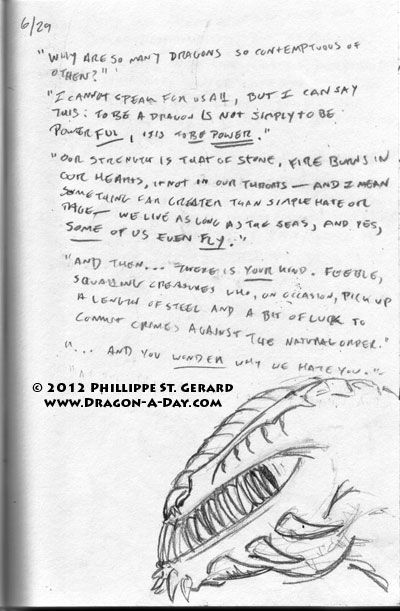 6/29
"WHY ARE SO MANY DRAGONS SO CONTEMPTUOUS OF
OTHER?"
"I CANNOT SPEAK FOR US ALL, BUT I CAN SAY
THIS: TO BE A DRAGON IS NOT SIMPLY TO BE
POWERFUL, IT IS TO BE POWER."
"OUR STRENGTH IS THAT OF STONE, FIRE BURNS IN
OUR HEARTS, IF NOT IN OUR THROATS — AND I MEAN
SOMETHING FAR GREATER THAN SIMPLE HATE OR
RAGE — WE LIVE AS LONG AS THE SEAS, AND YES,
SOME OF US EVEN FLY."
"AND THEN... THERE IS YOUR KIND. FEEBLE,
SQUALLING CREATURES WHO, ON OCCASION, PICK UP
A LENGTH OF STEEL AND A BIT OF LUCK TO
COMMIT CRIMES AGAINST THE NATURAL ORDER."
"... AND YOU WONDER WHY WE HATE YOU."
© 2012 PHILLIPPE ST. GERARD
WWW.DRAGON-A-DAY.COM